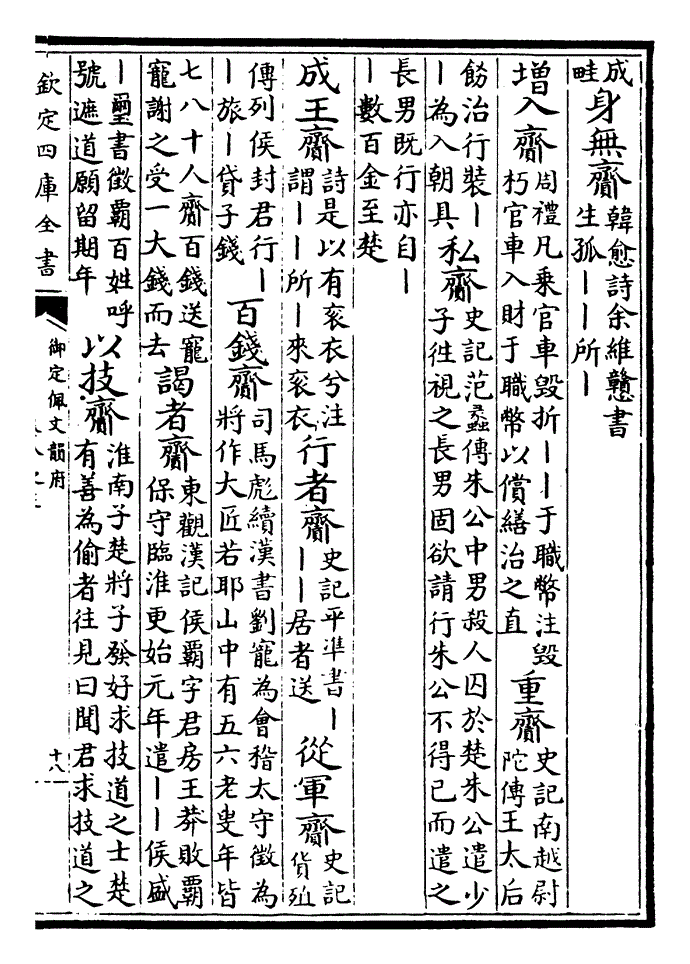 成畦 身無齎 韓愈詩余維戇書生孤——所—
增入齎 周禮凡乗官車毀折——于職幣注毀朽官車入財于職幣以償繕治之直 重齎 史記南越尉陀傳王太后
飭治行装——為入朝具 私齎 史記范蠡傳朱公中男殺人囚於楚朱公遣少子徃視之長男固欲請行朱公不得已而遣之
長男既行亦自——數百金至楚
成王齎 詩是以有衮衣兮注謂——所—來衮衣 行者齎 史記平準書———居者送 從軍齎 史記貨殖
傳列侯封君行——旅—貸子錢 百錢齎 司馬彪續漢書劉寵為會稽太守徵為將作大匠若耶山中有五六老叟年皆
七八十人齎百錢送寵寵謝之受一大錢而去 謁者齎 東觀漢記侯覇字君房王莽敗覇保守臨淮更始元年遣——侯盛
—璽書徵覇百姓呼號遮道願留期年 以技齎 淮南子楚將子發好求技道之士楚有善為偷者往見曰聞君求技道之
欽定四庫全書 御定佩文韻府 十八